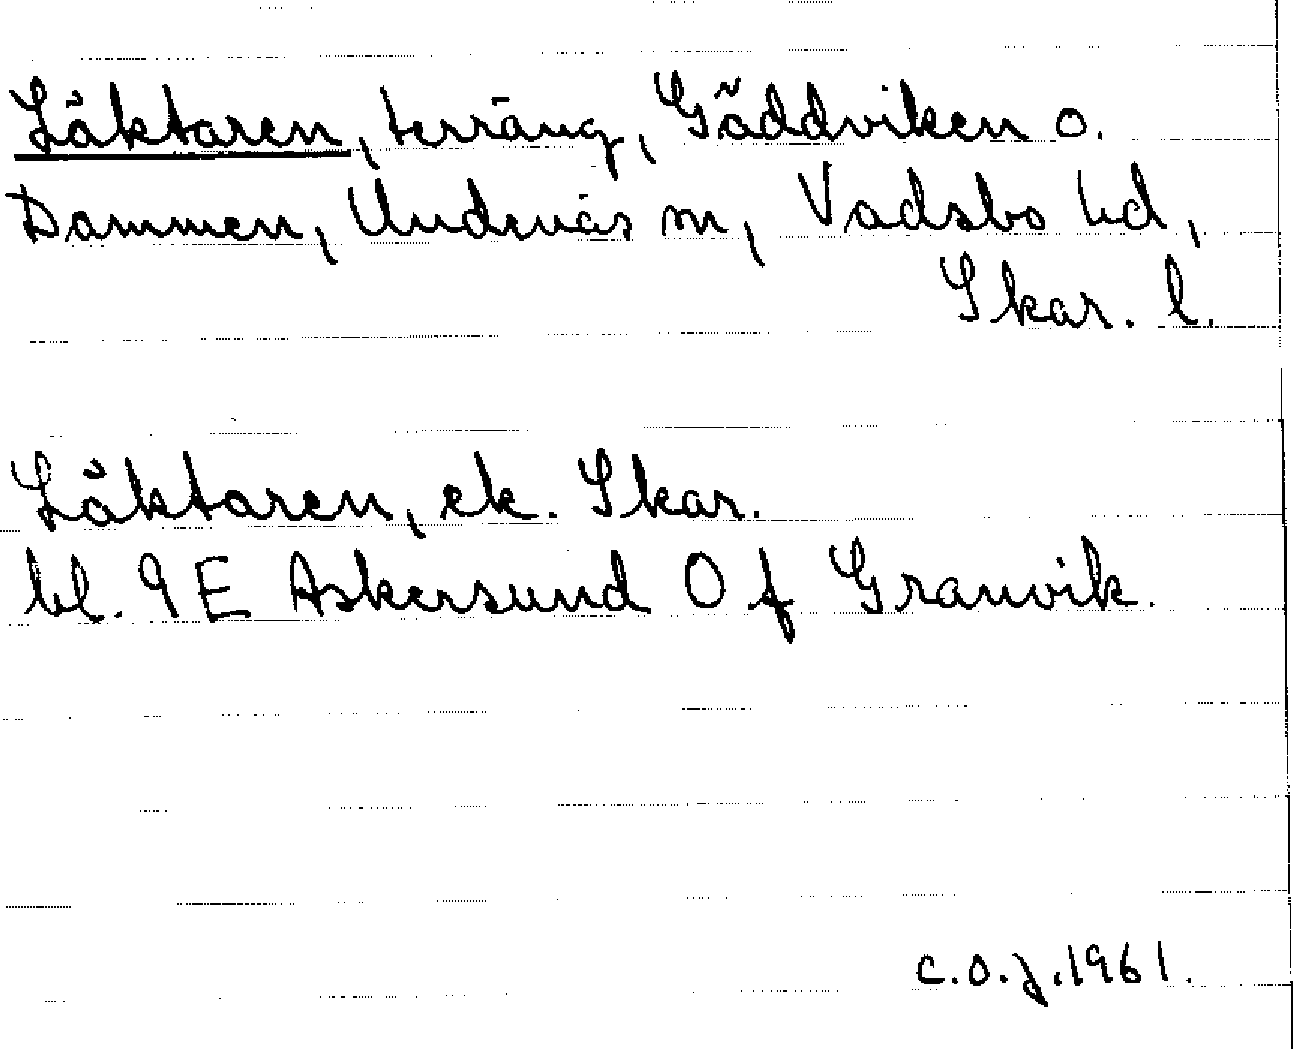 Läktaren, terräng, Gäddviken o.
Dammen, Undenäs sn, Vadsbo hd,
Skar. l.
Läktaren, ek. Skar.
bl. 9E Askersund 0 f Granvik.
C.O.J. 1961.